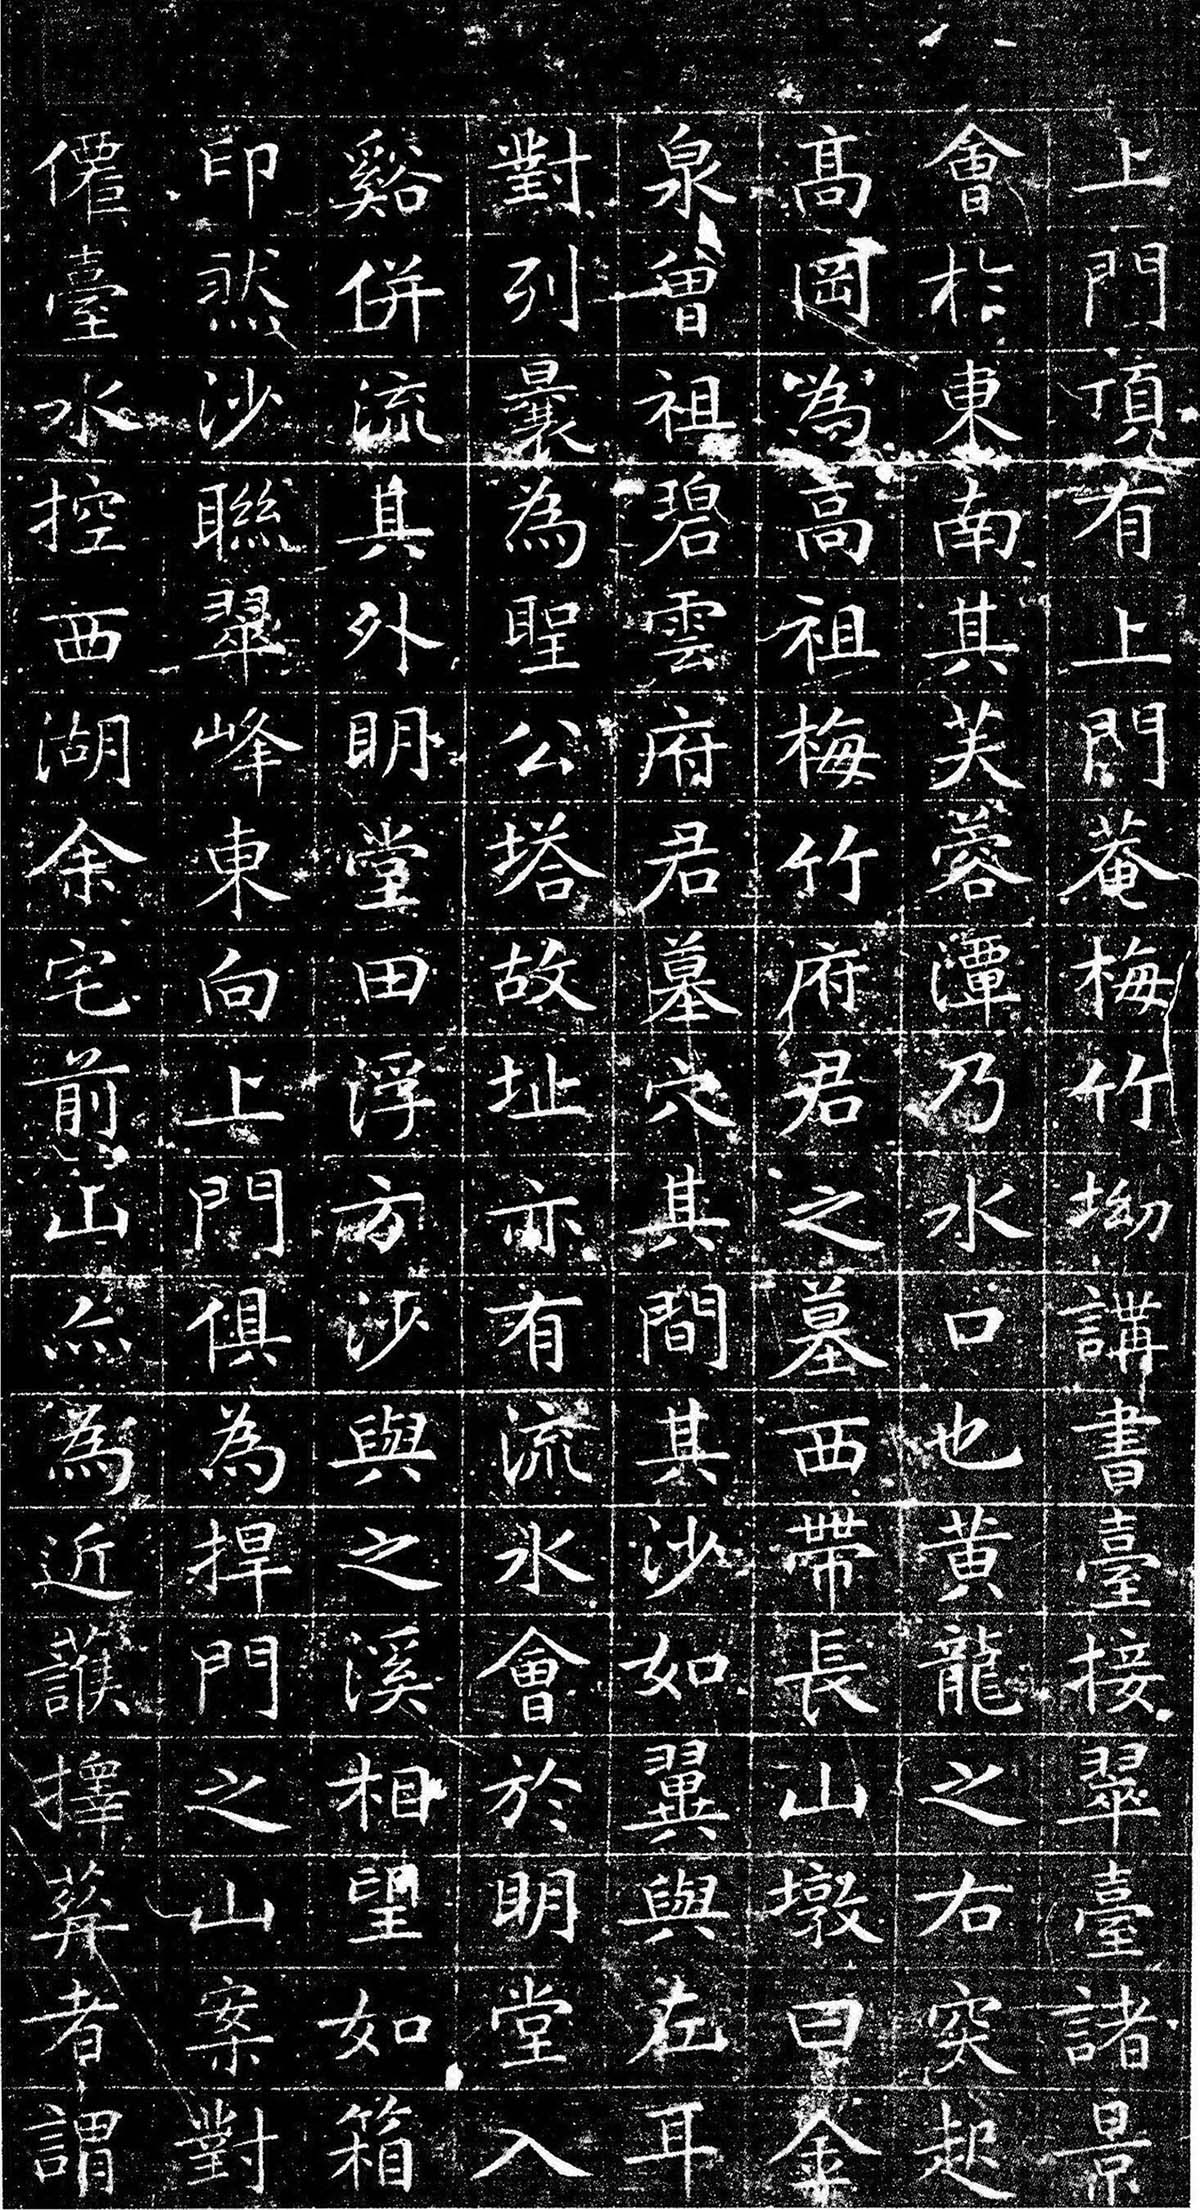 上門頂有上門菴梅竹坳講書臺接翠臺諸景
會於東南其芙蓉潭乃水口也黃龍之右突起
髙岡為高祖梅竹府君之墓西帶長山墩曰金
泉曾祖碧雲府君墓穴其間其沙如翼與左耳
對列曩為聖公塔故址亦有流水會於明堂入
谿併流其外明堂田浮方沙與之溪相望如箱
印然沙聯翠峰東向上門俱為捍門之山案對
僊臺水控西湖余宅前山亦為近護擇葬者謂